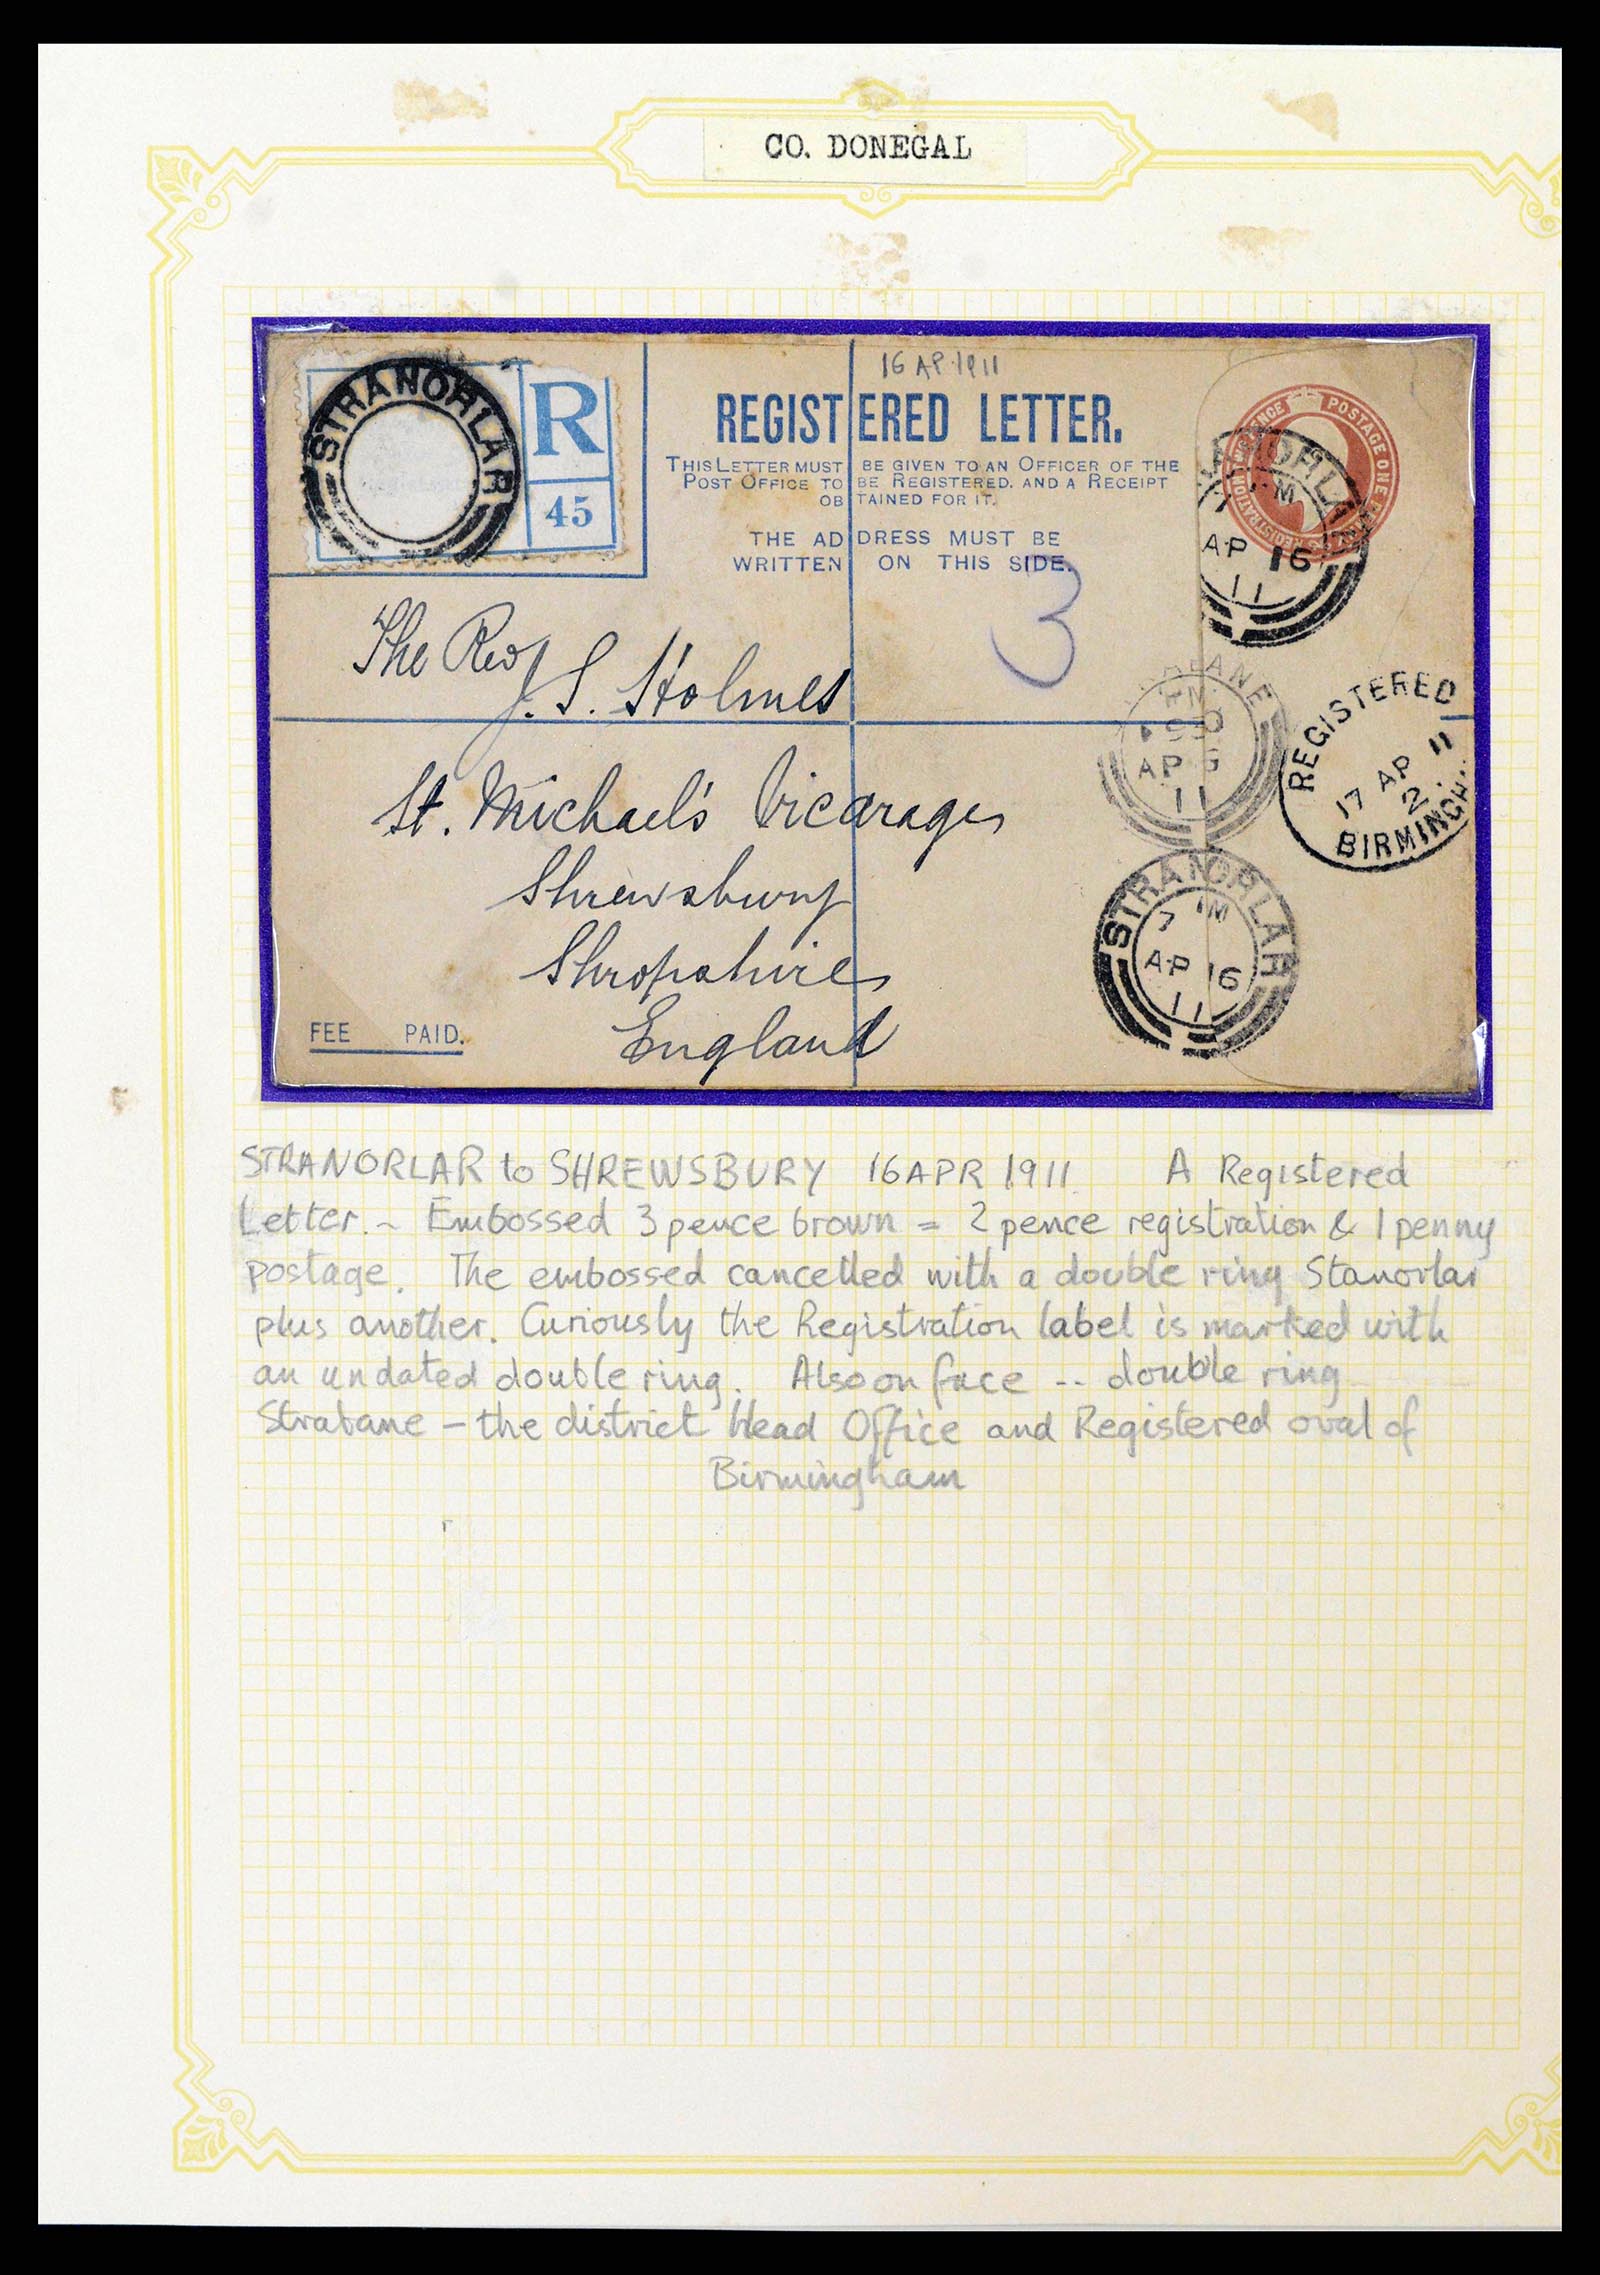 CO. DONEGAL
16 AP. 1911
STRANORLAR
R
45
REGISTERED LETTER.
THIS LETTER MUST BE GIVEN TO AN OFFICER OF THE
POST OFFICE TO BE REGISTERED, AND A RECEIPT
OBTAINED FOR IT.
THE ADDRESS MUST BE
WRITTEN ON THIS SIDE.
POSTAGE ONE
REGISTRATION
AP 16
11
3
The Rev
J. S. Holmes
St. Michael's Vicarage
Shrewsbury
Shropshire
England
FEE PAID.
AP
11
REGISTERED
17 AP 11
2
BIRMINGH
STRANORLAR
7 PM
AP 16
11
STRANORLAR to SHREWSBURY 16 APR 1911 A Registered
Letter. ~ Embossed 3 pence brown = 2 pence registration & 1 penny
postage. The embossed cancelled with a double ring Stanorlar
plus another. Curiously the Registration label is marked with
an undated double ring. Also on face -- double ring
Strabane – the district Head Office and Registered oval of
Birmingham